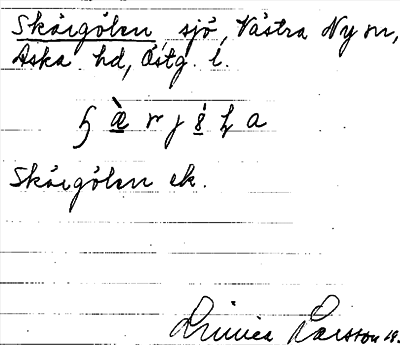 Skärgölen, sjö, Västra Ny sn,
Aska hd, Östg. l.
Skärgölen ek.
Linnea Larsson 19.